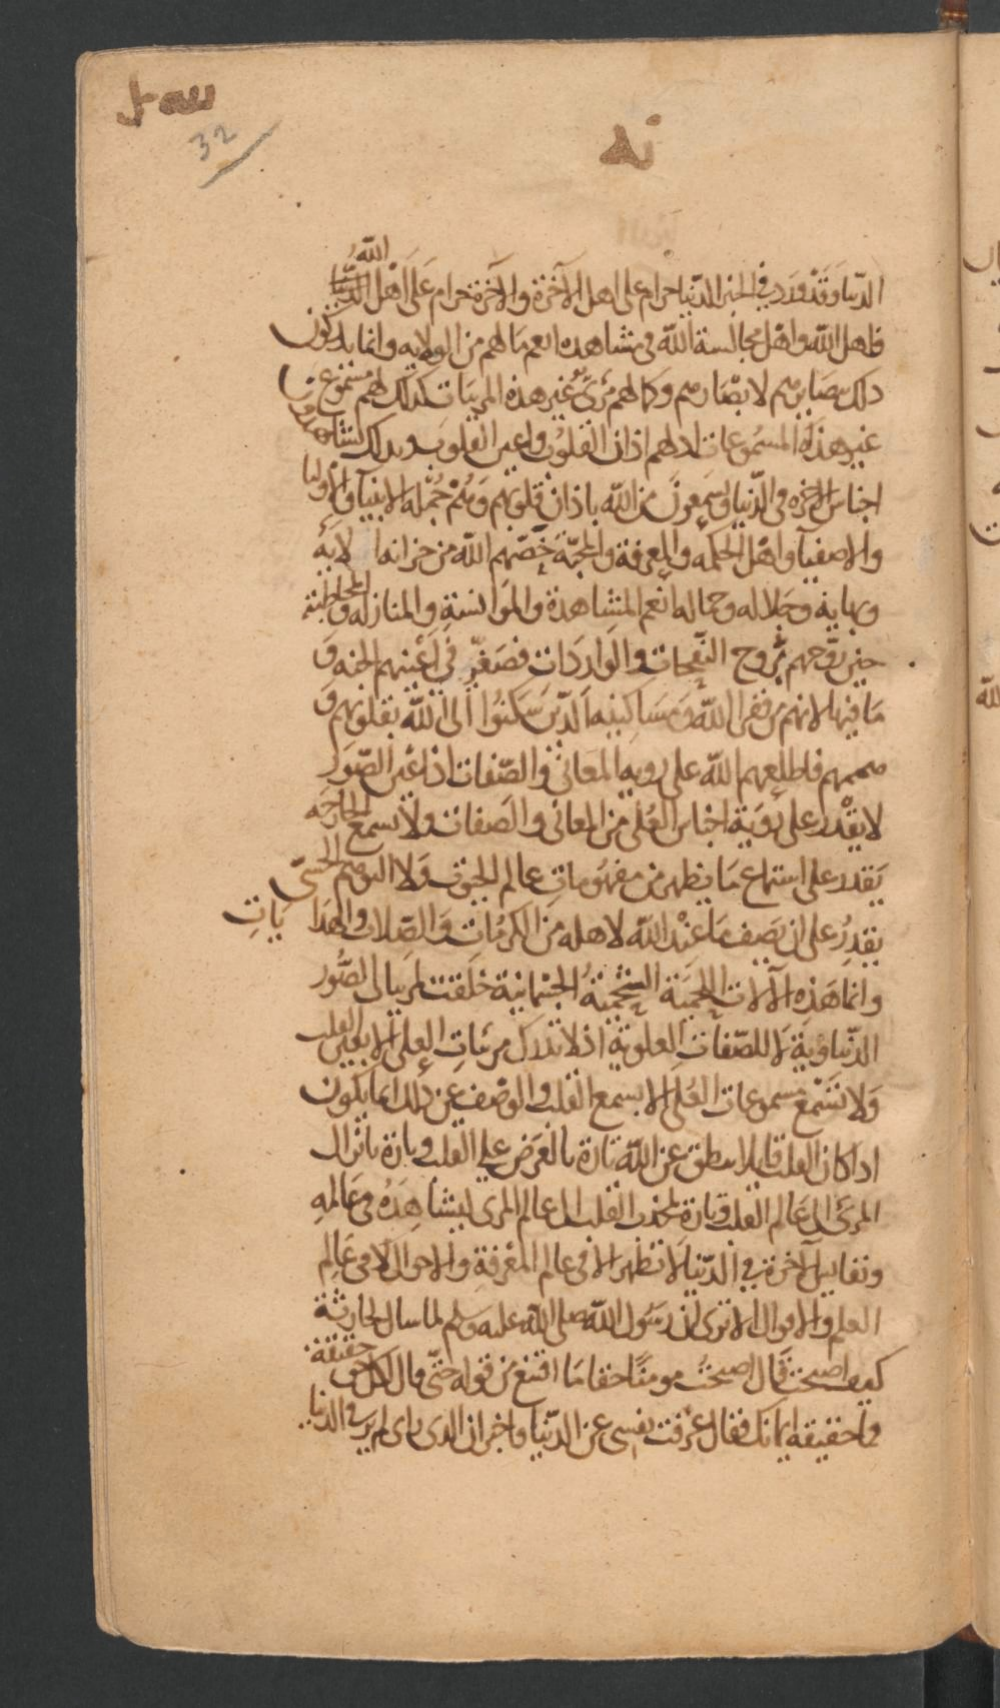 32
الدنيا وقد ورد في الخبر الدنيا حرام على اهل الآخرة والآخرة حرام على أهل الدنيا
الله
فاهل الله واهل مجالسة الله في مشاهده انعم ما لهم من الولايه وانما يدركون
ذلك ببصايرهم لا بصارهم وكما لهم مرئ غير هذه المرييات كذلك لهم مسموع
غير هذه المسموعات اذ لهم اذان القلوب واعين القلوب وبذلك يشاهدون
اجناس الآخره في الدنيا ويسمعون من الله باذان قلوبهم وهم جملة الانبيآ والاوليا
والاصفيآ واهل الحكمه والمعرفة والمحبة خصهم الله من خزانه الايه
وبهايه وجلاله وجماله انعم المشاهدة والموانسة والمنازله والمخاطبة
حين روحهم بروح النفحات والواردات فصغر في اعينهم الجنه و
ما فيها لانهم من فقرا الله ومساكينه الذين سكنوا الى الله بقلوبهم و
هممهم فاطلعهم الله على رويه المعاني والصفات اذ اعين الصور
لا يقدر على رؤية اجناس العلى من المعاني والصفات ولا سمع الجارحه
يقدر على استماع ما يظهر من مفهومات عالم الحق ولا التوهم الحسي
يقدر على ان يصف ما عند الله لاهله من الكرمات والصلات والهدايات
وانما هذه الآلات اللحمية الشحمية الجسمانية خلقت لمريبا الى الصور
الدنياوية لا للصفات العلوية اذ لا تدرك مرئيات العلى الا بعين القلب
ولا تسمع مسموعات العلى الا بسمع القلب والوصف عن ذلك انما يكون
اذا كان القلب قايلا ينطق عن الله تارة بالعرض على القلب وتارة بانزال
المرئ الى عالم القلب وتارة بجذب القلب الى عالم المرى ليشاهده في عالمه
ونفايس الآخرة في الدنيا لا تظهر الا في عالم المعرفة والاحوال لا في عالم
العلم والاقوال الا ترى ان رسول الله صلى الله عليه وسلم لما سال الحارثة
كيف اصبحت قال اصبحت مومنا حقا ما اقنع من قوله حتى قال لكل حق حقيقة
وما حقيقه ايمانك فقال عزفت نفسي عن الدنيا واخبر ان الذي راى لم ير في الدنيا